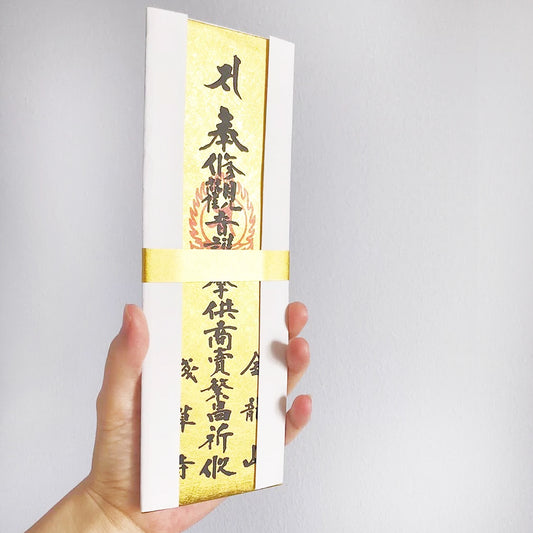 奉修觀音
奉供商賣繁昌祈攸
金龍山
淺草寺